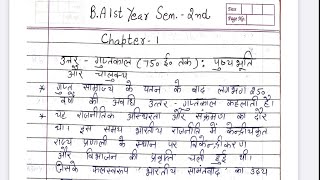 Date
Page No.
B.A 1st Year Sem.- 2nd
Chapter-1
उत्तर - गुप्तकाल (750 ई० तक) : पुष्यभूति
और चालुक्य
* गुप्त साम्राज्य के पतन के बाद लगभग 250
वर्षों की अवधि उत्तर - गुप्तकाल कहलाती है।
* यह राजनीतिक अस्थिरता और संक्रमण का दौर
था। इस समय भारतीय राजनीति में केन्द्रीयकृत
राज्य प्रणाली के स्थान पर विकेन्द्रीकरण
और विभाजन की प्रवृत्ति चली हुई थी।
जिसके फलस्वरूप 'भारतीय सामंतवाद' का उदय